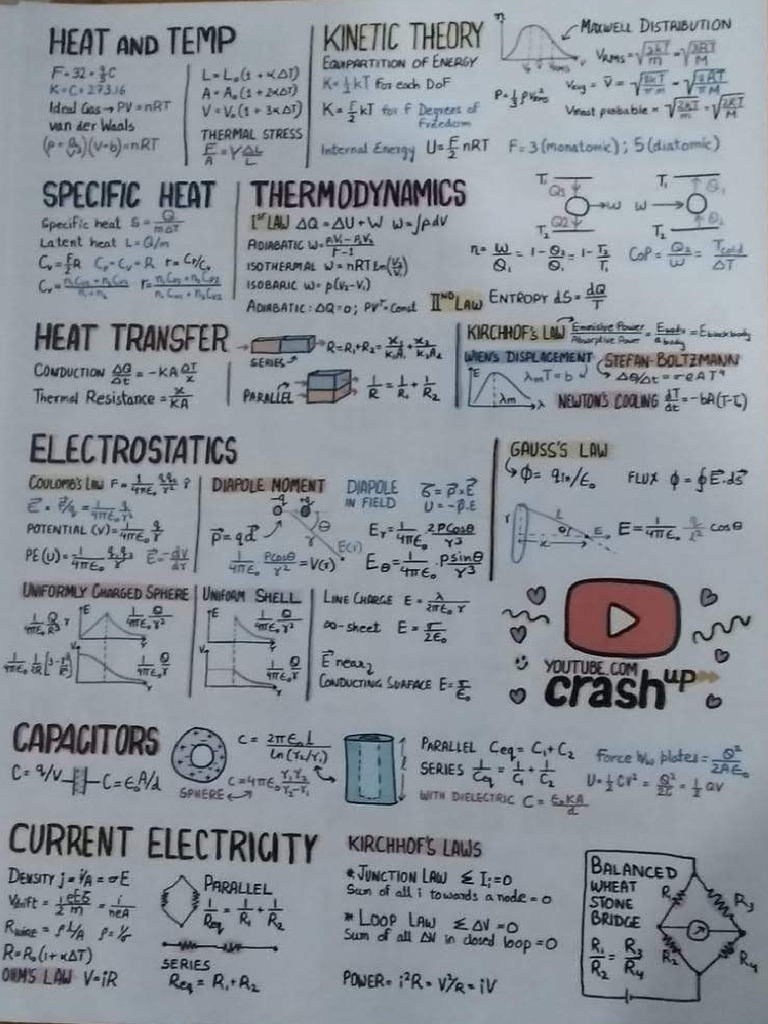 HEAT AND TEMP
F-32 = 9/5 C
K = C + 273.16
Ideal Gas → PV = nRT
van der Waals
(V-b) = nRT
L = L₀(1 + αΔT)
A = A₀(1 + 2αΔT)
V = V₀(1 + 3αΔT)
THERMAL STRESS
F/A = Y ΔL/L
KINETIC THEORY
EQUIPARTITION OF ENERGY
K = 1/2 kT for each DoF
K = F/2 kT for f Degrees of Freedom
Internal Energy U = F/2 nRT F = 3 (monatomic) ; 5 (diatomic)
MAXWELL DISTRIBUTION
Vrms = √(3kT/m) = √(3RT/M)
P = 1/3 ρ V²rms
Vavg = V̄ =
Vmost probable = √(2kT/m) =
SPECIFIC HEAT
Specific heat S = Q/mΔT
Latent heat L = Q/m
Cv = f/2 R Cp = Cv + R r = Cp/Cv
THERMODYNAMICS
Iˢᵗ LAW ΔQ = ΔU + W W = ∫pdV
ADIABATIC W =
ISOTHERMAL W = nRT ln(V₂/V₁)
ISOBARIC W = p(V₂-V₁)
ADIABATIC : ΔQ = 0 ; PVʳ = Const
IIᴺᴰ LAW ENTROPY dS = dQ/T
T₁
Q₁
W
Q₂
T₂
T₁
Q₁
W
Q₂
T₂
n = W/Q₁ = 1 - Q₂/Q₁ = 1 - T₂/T₁
CoP = Q₂/W = Tcold/ΔT
HEAT TRANSFER
CONDUCTION ΔQ/Δt = -KA ΔT/x
Thermal Resistance = x/KA
SERIES
R = R₁ + R₂ = x₁/K₁A₁ + x₂/K₂A₂
PARALLEL
1/R = 1/R₁ + 1/R₂
KIRCHHOF'S LAW Emissive Power/Absorptive Power = Ebody/abody = Eblackbody
WIEN'S DISPLACEMENT
λmT = b
E
λm
λ
STEFAN-BOLTZMANN
ΔQ/Δt = σeAT⁴
NEWTON'S COOLING dT/dt = -bA(T-T₀)
ELECTROSTATICS
COULOMB'S LAW F = 1/4πϵ₀ q₁q₂/r² r̂
POTENTIAL (V) = 1/4πϵ₀ q/r
PE (U) = 1/4πϵ₀ q₁q₂/r E⃗ = -dV/dr
DIAPOLE MOMENT
-q +q
p⃗ = qd⃗
θ
E(r)
1/4πϵ₀ pcosθ/r² = V(r)
DIAPOLE IN FIELD
U = -p⃗.E⃗
Er = 1/4πϵ₀ 2pcosθ/r³
Eθ = 1/4πϵ₀ psinθ/r³
GAUSS'S LAW
Φ = qin/ϵ₀ FLUX Φ = ∮E⃗.ds⃗
E = 1/4πϵ₀ cosθ
UNIFORMLY CHARGED SPHERE
1/4πϵ₀ Q/R³ r
E
1/4πϵ₀ Q/r²
V
1/4πϵ₀ Q/r
UNIFORM SHELL
E
1/4πϵ₀ Q/r²
V
1/4πϵ₀ Q/r
LINE CHARGE E = λ/2πϵ₀r
∞-sheet E = σ/2ϵ₀
E⃗ near
CONDUCTING SURFACE E = σ/ϵ₀
YOUTUBE.COM
crash up
CAPACITORS
C = q/V
C = ϵ₀A/d
SPHERE
C = 2πϵ₀l/ln(r₂/r₁)
C = 4πϵ₀ r₁r₂/r₂-r₁
l
PARALLEL Ceq = C₁ + C₂
SERIES 1/Ceq = 1/C₁ + 1/C₂
WITH DIELECTRIC C = ϵ₀KA/d
Force b/w plates = Q²/2Aϵ₀
U = 1/2 CV² = Q²/2C = 1/2 QV
CURRENT ELECTRICITY
DENSITY j = i/A = σE
Vdrift = 1/2 = i/neA
Rwire = ρl/A ρ = 1/σ
R = R₀(1 + αΔT)
OHM'S LAW V = iR
PARALLEL
1/Req = 1/R₁ + 1/R₂
SERIES
Req = R₁ + R₂
KIRCHHOF'S LAWS
* JUNCTION LAW Σ Iᵢ = 0
Sum of all i towards a node = 0
* LOOP LAW Σ ΔV = 0
Sum of all ΔV in closed loop = 0
POWER = i²R = V²/R = iV
BALANCED
WHEAT
STONE
BRIDGE
R₁/R₂ = R₃/R₄
R₁
R₃
R₂
R₄